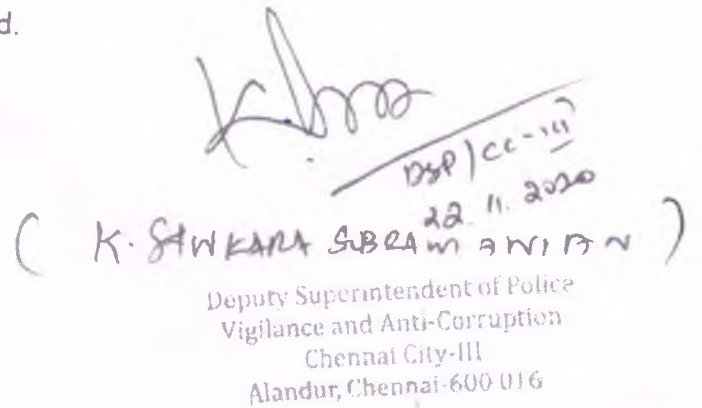 d.
DSP/CC-III
22.11.2020
( K. SANKARA SUBRAMANIAN )
Deputy Superintendent of Police
Vigilance and Anti-Corruption
Chennai City-III
Alandur, Chennai-600 016